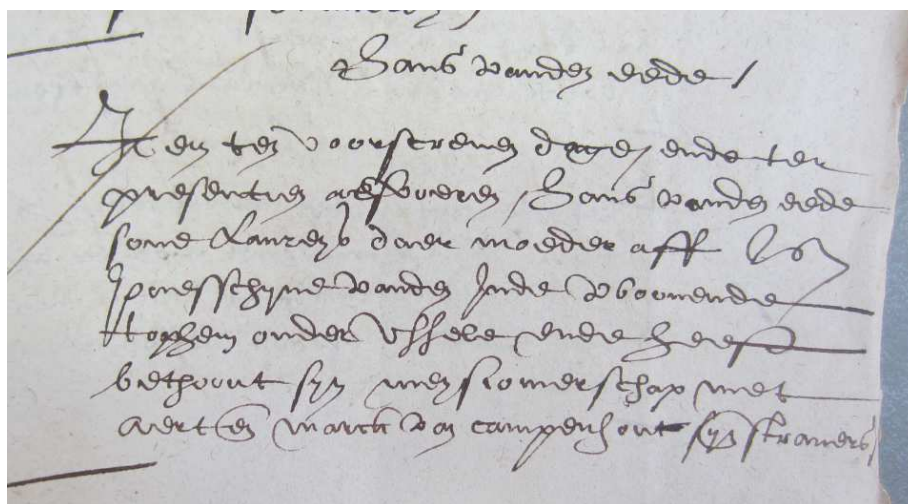 Hans vanden eede /
Item ten voorscreven dage, ende ter
presentien als voeren, Hans vanden eede
sone Laureys daer moeder aff
Joneffchyne vanden Jnde woonende
tophem onder Ussele ende heeft
bethoont syn meyssomerschap met
Aert en marck van campenhout syn